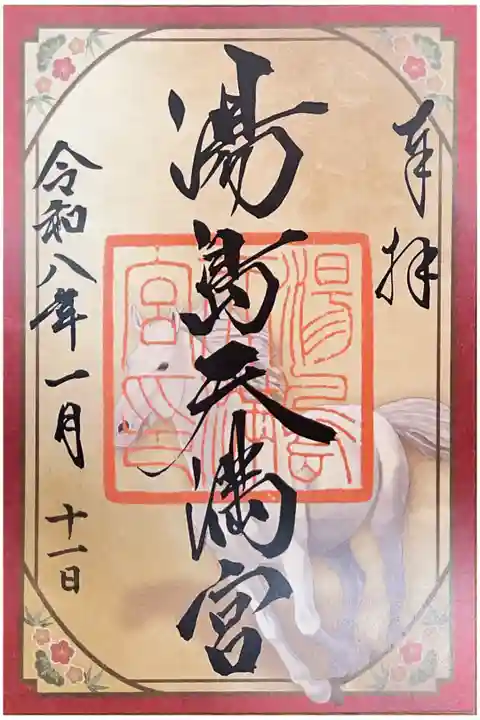 奉拝
湯島天満宮
令和八年一月十一日
湯島
天満
宮之印